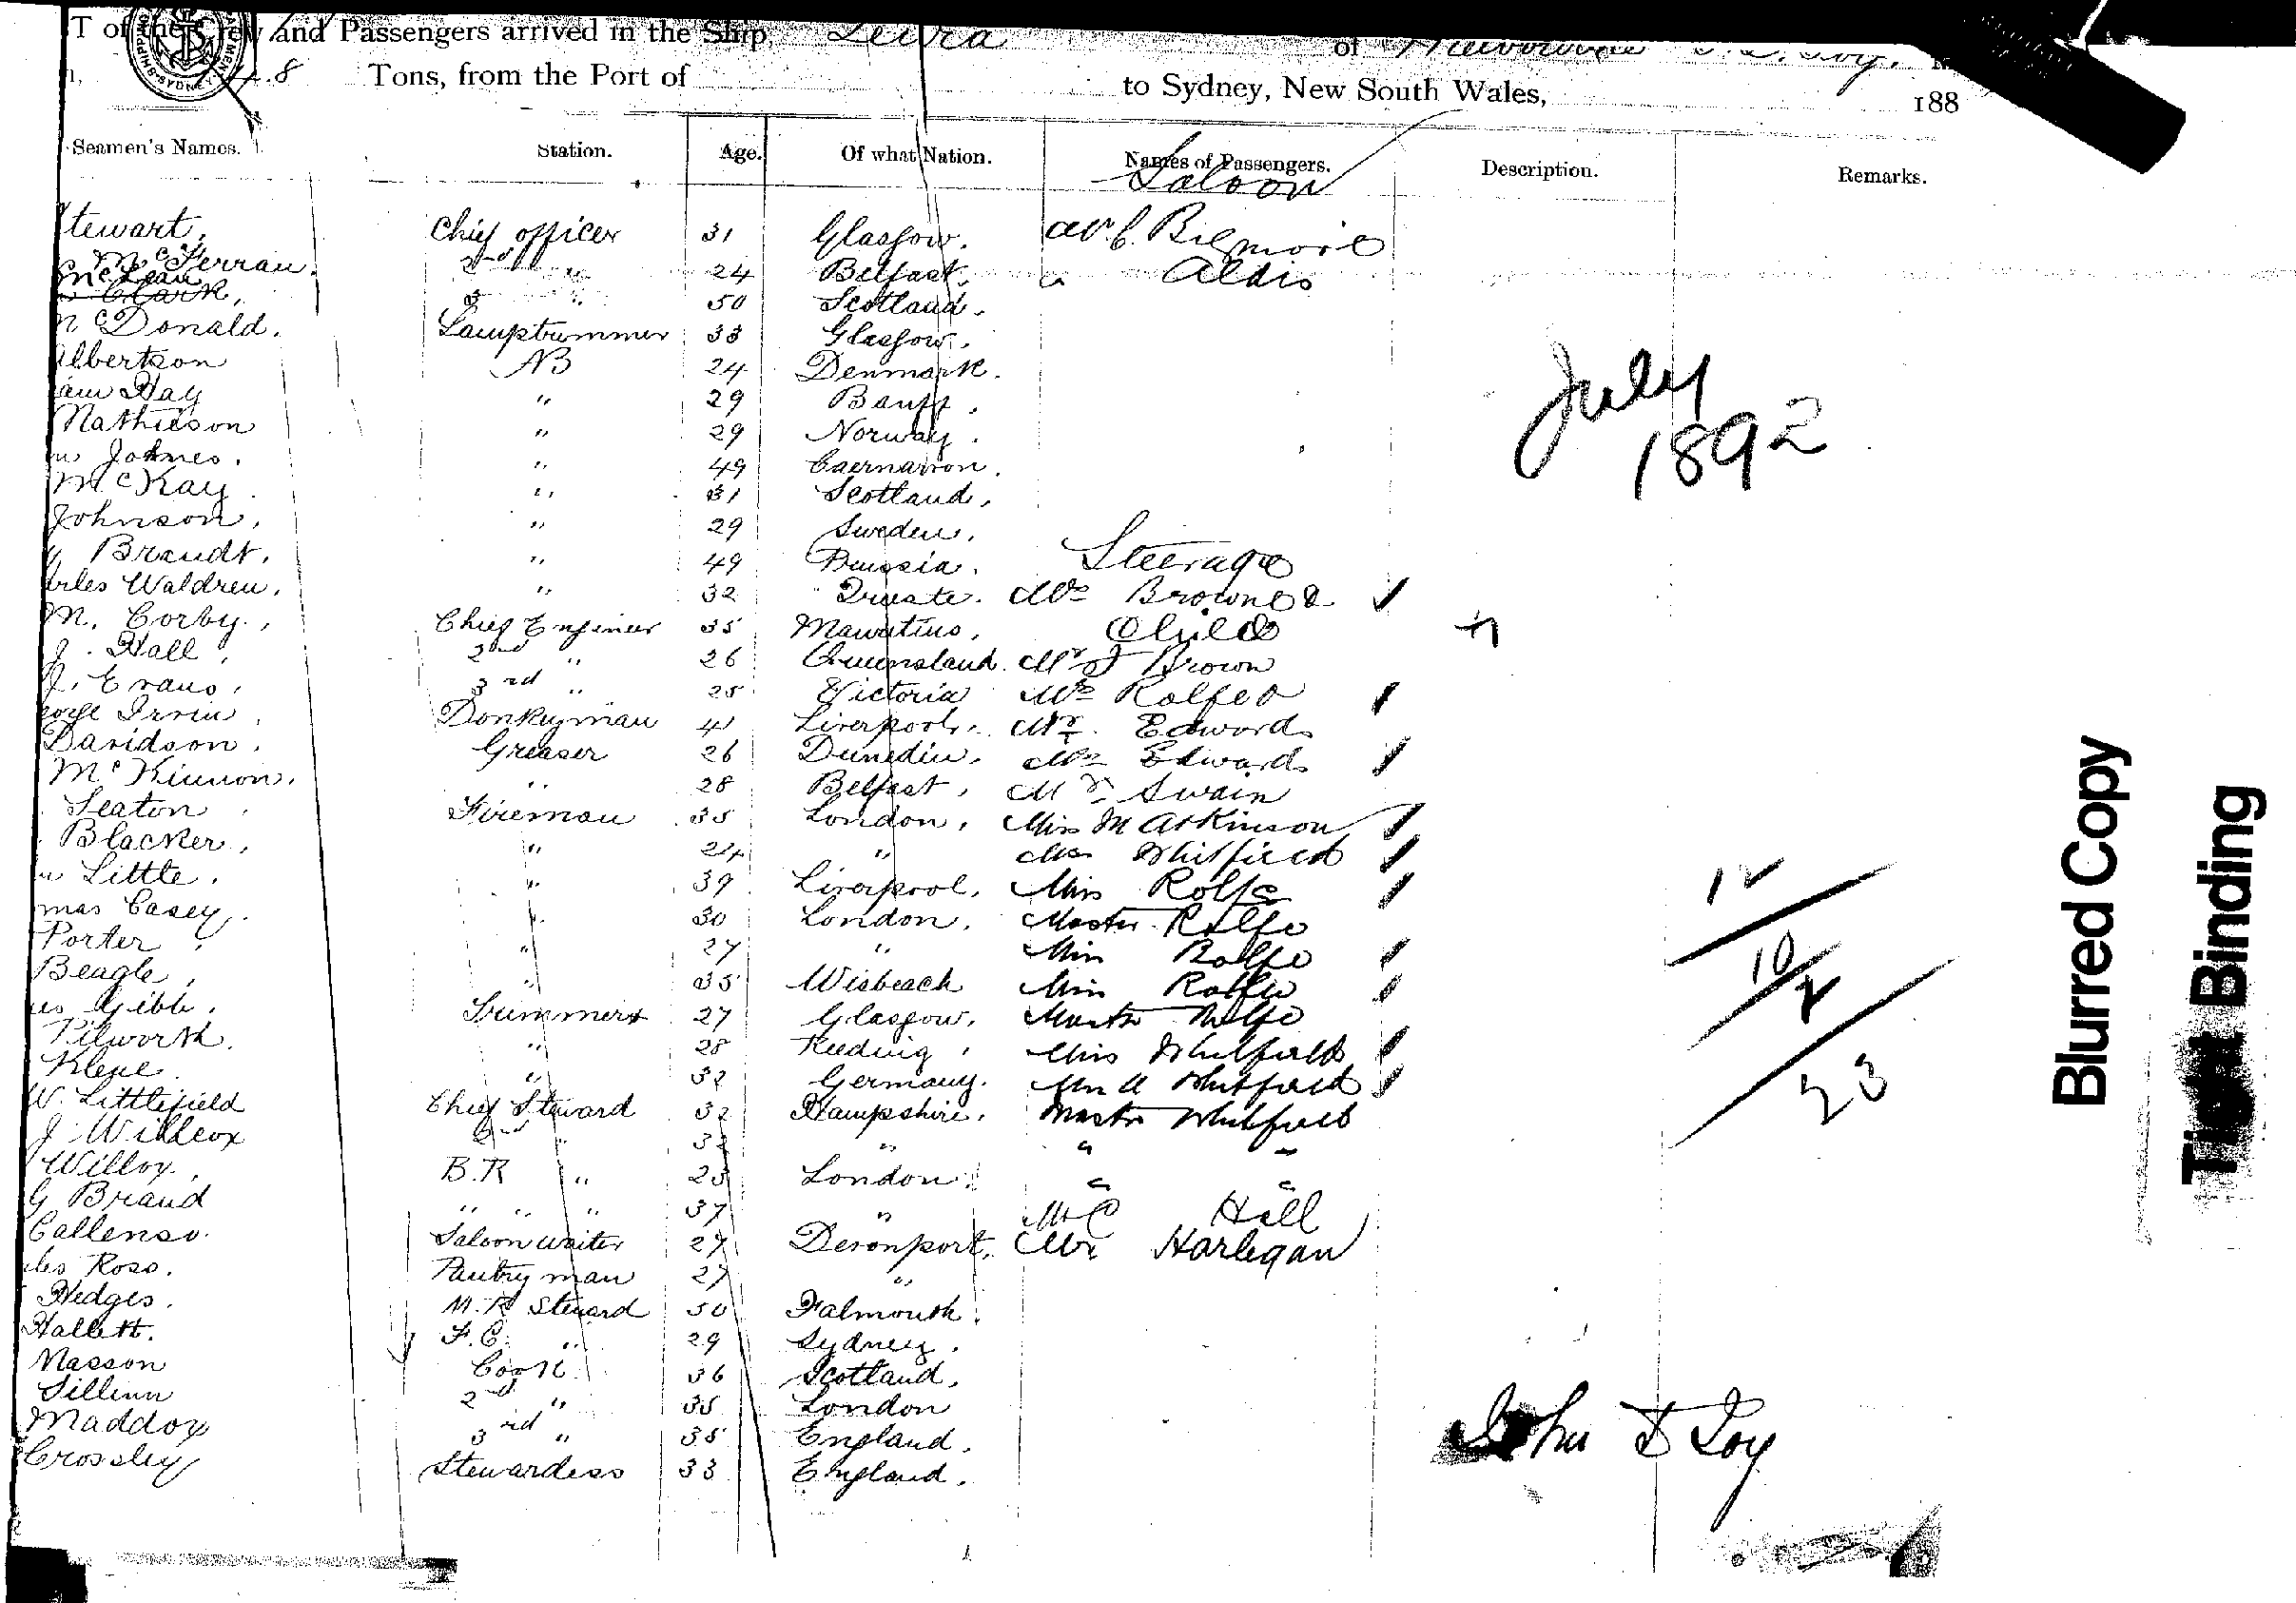 T of the Crew and Passengers arrived in the Ship, of
8 Tons, from the Port of to Sydney, New South Wales, 188
Seamen's Names. Station. Age. Of what Nation. Names of Passengers. Description. Remarks.
Saloon
tewart, Chief officer 31 Glasgow.
McFerran. 2nd " 24 Belfast. " Aldis
McLean
Clark, 3 " 50 Scotland.
McDonald. Lamptrimmer 33 Glasgow.
Albertson AB 24 Denmark.
July
1892
Hay " 29 Banff.
Mathieson " 29 Norway.
" 49 Caernarvon.
McKay " 31 Scotland.
Johnson, " 29 Sweden.
Steerage
Brandt, " 49 Prussia.
arles Waldren, " 32 Mrs Brown
M. Corby, Chief Engineer 35 Mauritius, Child
J. Hall, 2nd " 26 Queensland. Mr J Brown
J. Evans, 3rd " 25 Victoria Mrs Rolfe
eorge Irvin, Donkeyman 41 Liverpool. Mr. Edwards
Davidson. Greaser 26 Dunedin. Mrs Edwards
McKinnon. " 28 Belfast, Mr. Swain
Seaton Fireman 35 London, Miss M Atkinson
Blacker, " 24 " Mrs Whitfield
Little. " 39 Liverpool. Miss Rolfe
mas Casey, " 30 London. Master Rolfe
Porter " 27 " Miss Rolfe
Beagle, " 35 Wisbeach Miss Rolfe
Gibb. Trimmers 27 Glasgow. Master Rolfe
Pilworth. " 28 Miss Whitfield
Klene " 32 Germany. Miss A Whitfield
W. Littlefield Chief Steward 32 Hampshire. Master Whitfield
J. Willcox 2nd " 32 " " "
Willox, B.R " 25 London. " "
G Brand " " " 37 " Hill
Callenso. Saloon waiter 27 Devonport. Mr Harlegan
Ross. Pantry man 27 "
Hedges. M.R Steward 50 Falmouth.
Hallett. F.C. " 29 Sydney.
Masson Cook 36 Scotland.
2nd " 35 London
Maddox 3rd " 35 England.
Crossley Stewardess 33 England.
12
10
23
John
Blurred Copy
Tight Binding